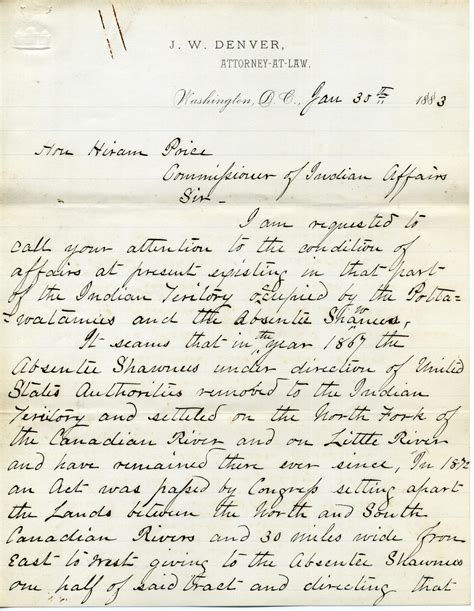 J. W. DENVER,
ATTORNEY-AT-LAW,
Washington, D.C., Jan 30th 1883
Hon Hiram Price
Commissioner of Indian Affairs
Sir-
I am requested to
call your attention to the condition of
affairs at present existing in that part
of the Indian Teritory occupied by the Potta-
-watamies and the Absentee Shawnees,
It seams that in the year 1867 the
Absentee Shawnees under direction of United
States Authorities removed to the Indian
Teritory and settled on the North Fork of
the Canadian River and on Little River
and have remained there ever since, In 187
an Act was passed by Congress setting apart
the Lands between the North and South
Canadian Rivers and 30 miles wide from
East to West giving to the Absentee Shawnees
one half of said tract and directing that